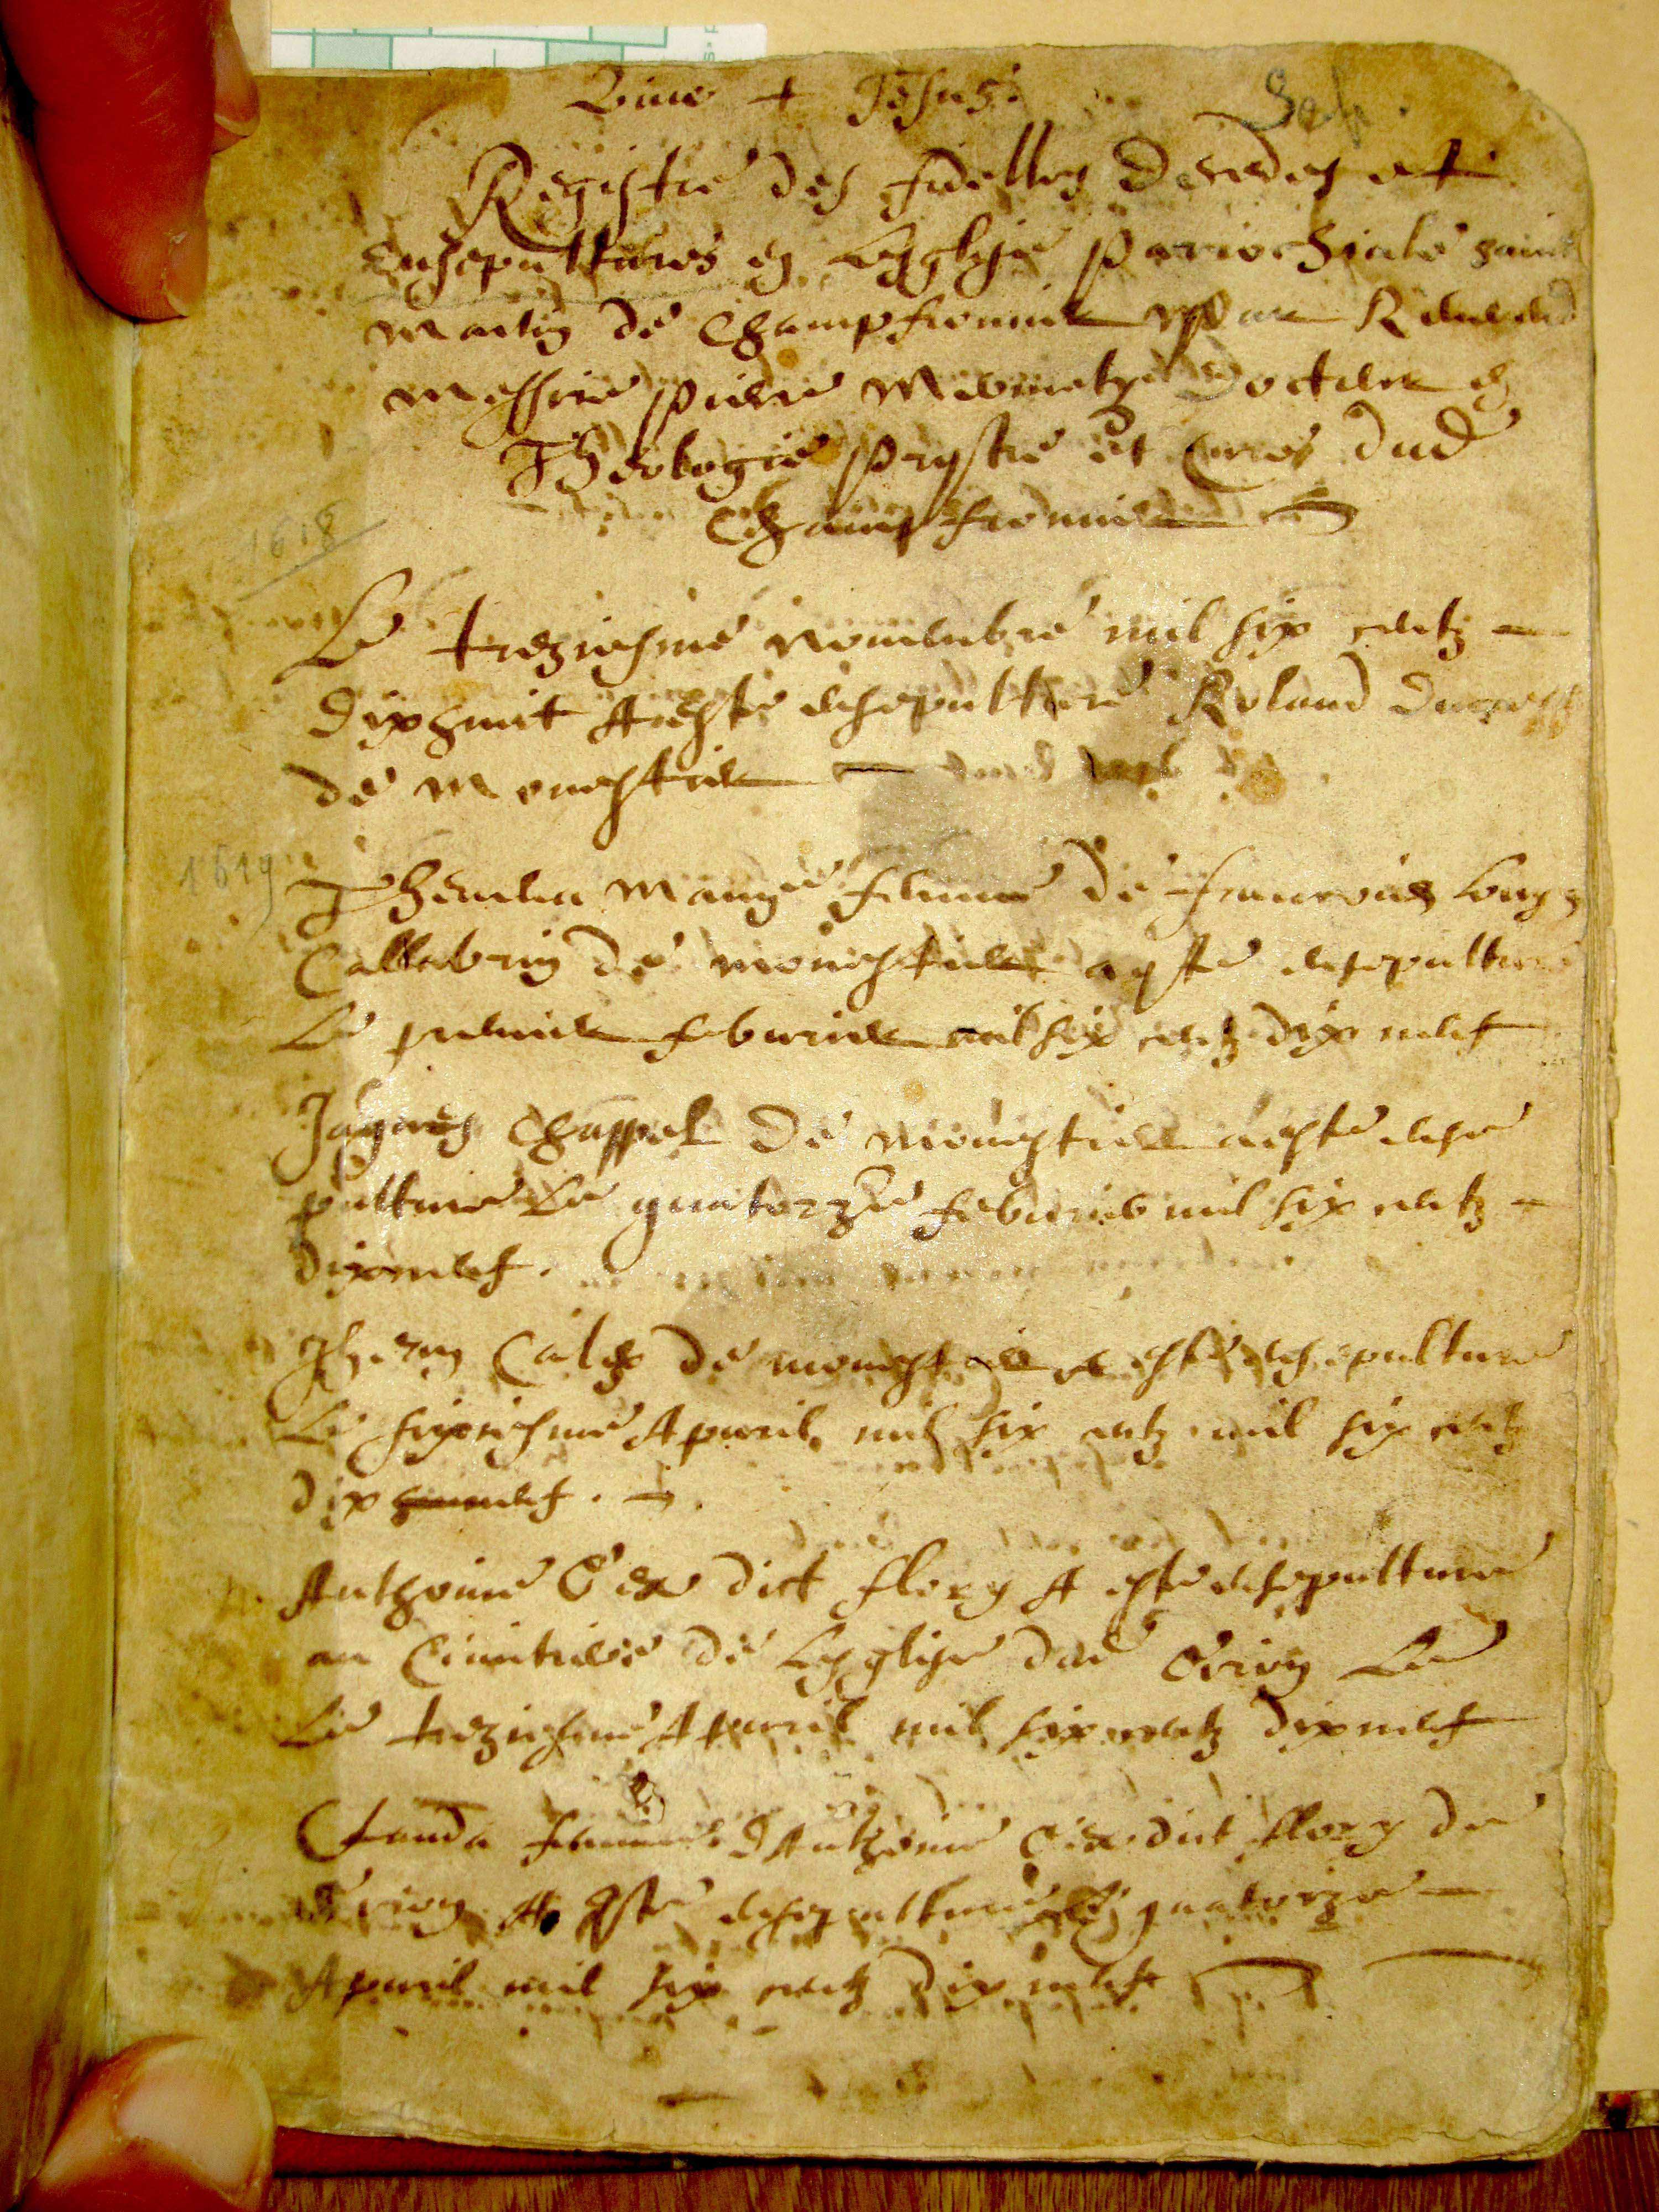 Vive + Jesus
Sep.
Registre des fidelles decedes et
ensepultures en Lesglyse parrochiale sainct
Martin de Champfromier par Reverend
messire pierre docteur en
Theologie prestre et cure dud
Champfromier
1618
Le treziesme novembre mil six centz
dixhuit a este ensepulture Roland
de monestier
1619
mange femme de francois
de monestier a este ensepulture
Le premier febvrier mil six centz dix neuf
Jaques Chappel de monestier a este ense
pulture Le quatorze febvrier mil six centz
dixneuf.
de monestier a este ensepulture
Le sixiesme Apvril mil six centz mil six centz
dix neuf.
Anthoine dict flory A este ensepulture
au Cimitiere de Lesglise dud Le
Le treziesme Apvril mil six centz dixneuf
Clauda femme d'Anthoine dict flory de
A este ensepulture Le quatorze
Apvril mil six centz dix neuf